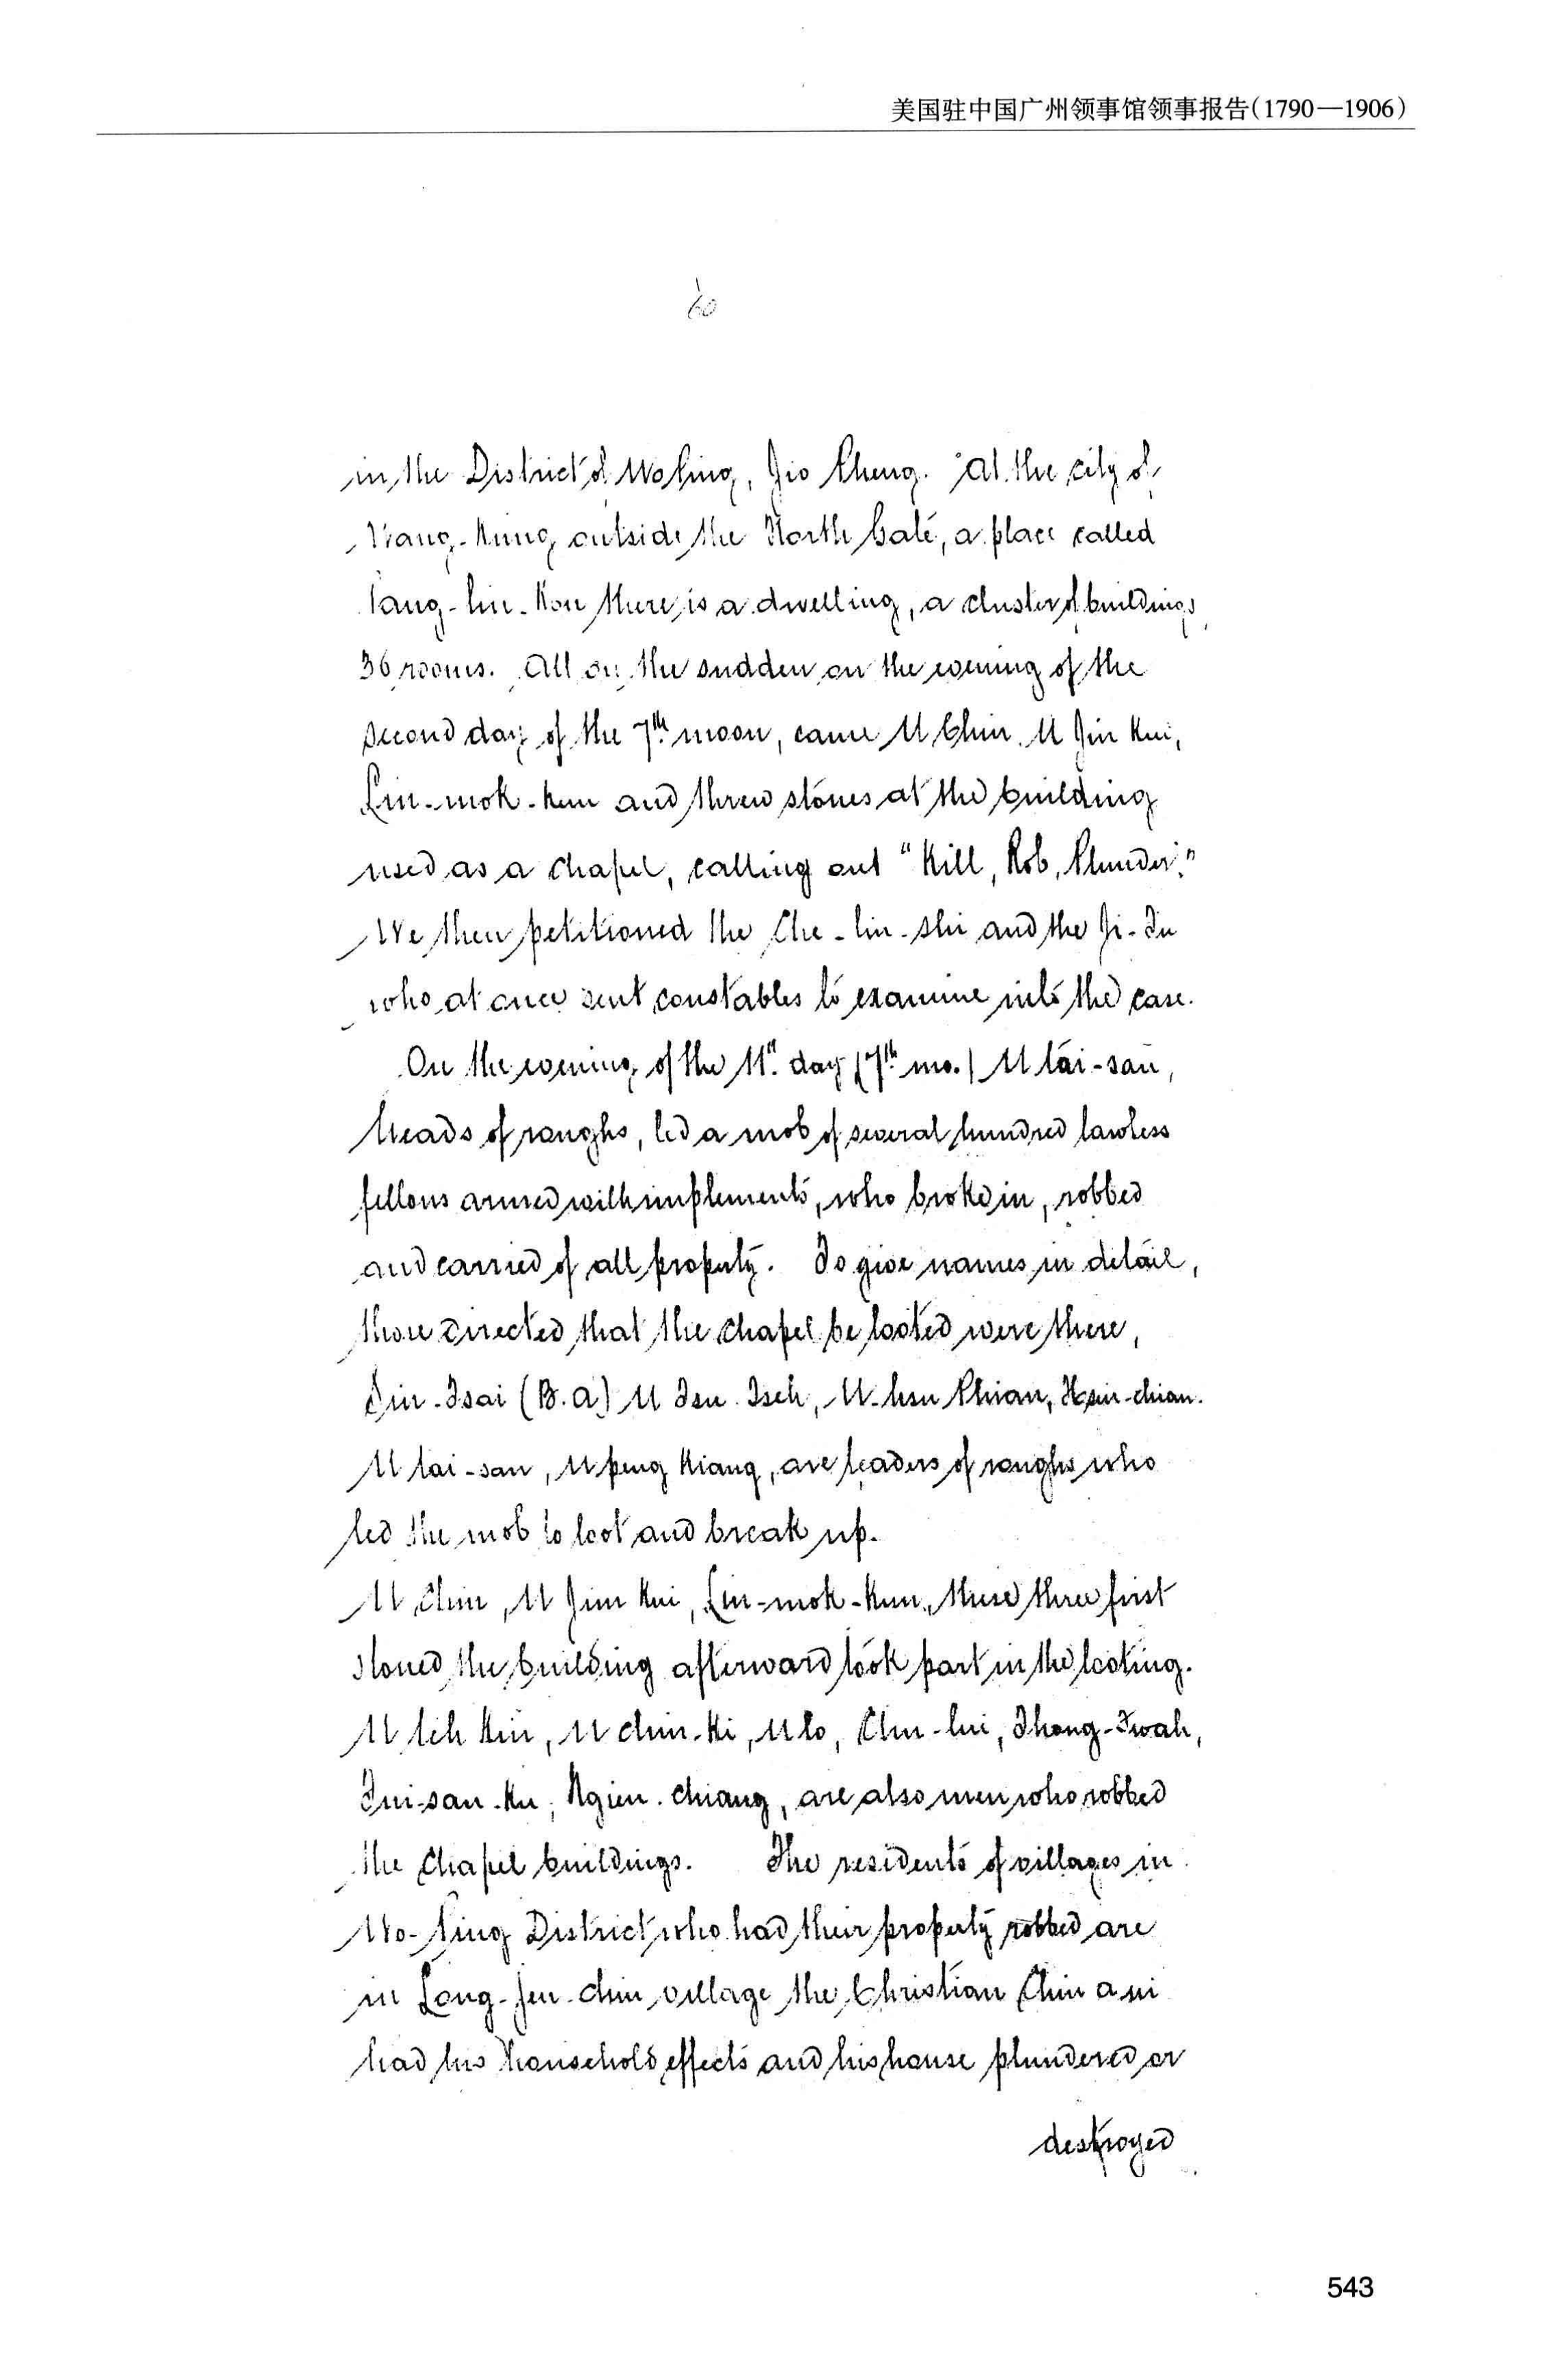 美国驻中国广州领事馆领事报告(1790—1906)
60
in the District of Wo Ping, Jio Cheng. At the city of
Kiang-Kung outside the North Gate, a place called
Tang-lin-Kou there is a dwelling, a cluster of buildings
36 rooms. All on the sudden on the evening of the
second day of the 7th moon, came U Chin, U Jin Kui,
Lin-mok-kun and threw stones at the building
used as a chapel, calling out "Kill, Rob, Plunder."
We then petitioned the Che-lin-shi and the Ji-Tu
who at once sent constables to examine into the case.
On the evening of the 11th day (7th mo.) U tai-san,
heads of roughs, led a mob of several hundred lawless
fellows armed with implements, who broke in, robbed
and carried of all property. To give names in detail,
those directed that the chapel be looted were there,
Siu-Tsai (B.A) U Tsu Tseh, U-hsu Chian, Hsin-chian.
U tai-san, U peng Kiang, are leaders of roughs who
led the mob to loot and break up.
U Chin, U Jim Kui, Lin-mok-Kun, these three first
stoned the building afterward took part in the looting.
U teh Kin, U chun-Ki, U lo, Chu-lui, Thong-Twah,
Tui-san-Ku, Ngien-chiang, are also men who robbed
the Chapel buildings. The residents of villages in
Wo-Ping District who had their property robbed are
in Long-Jen-chin village the Christian Chin a ni
had his household effects and his house plundered or
destroyed
543